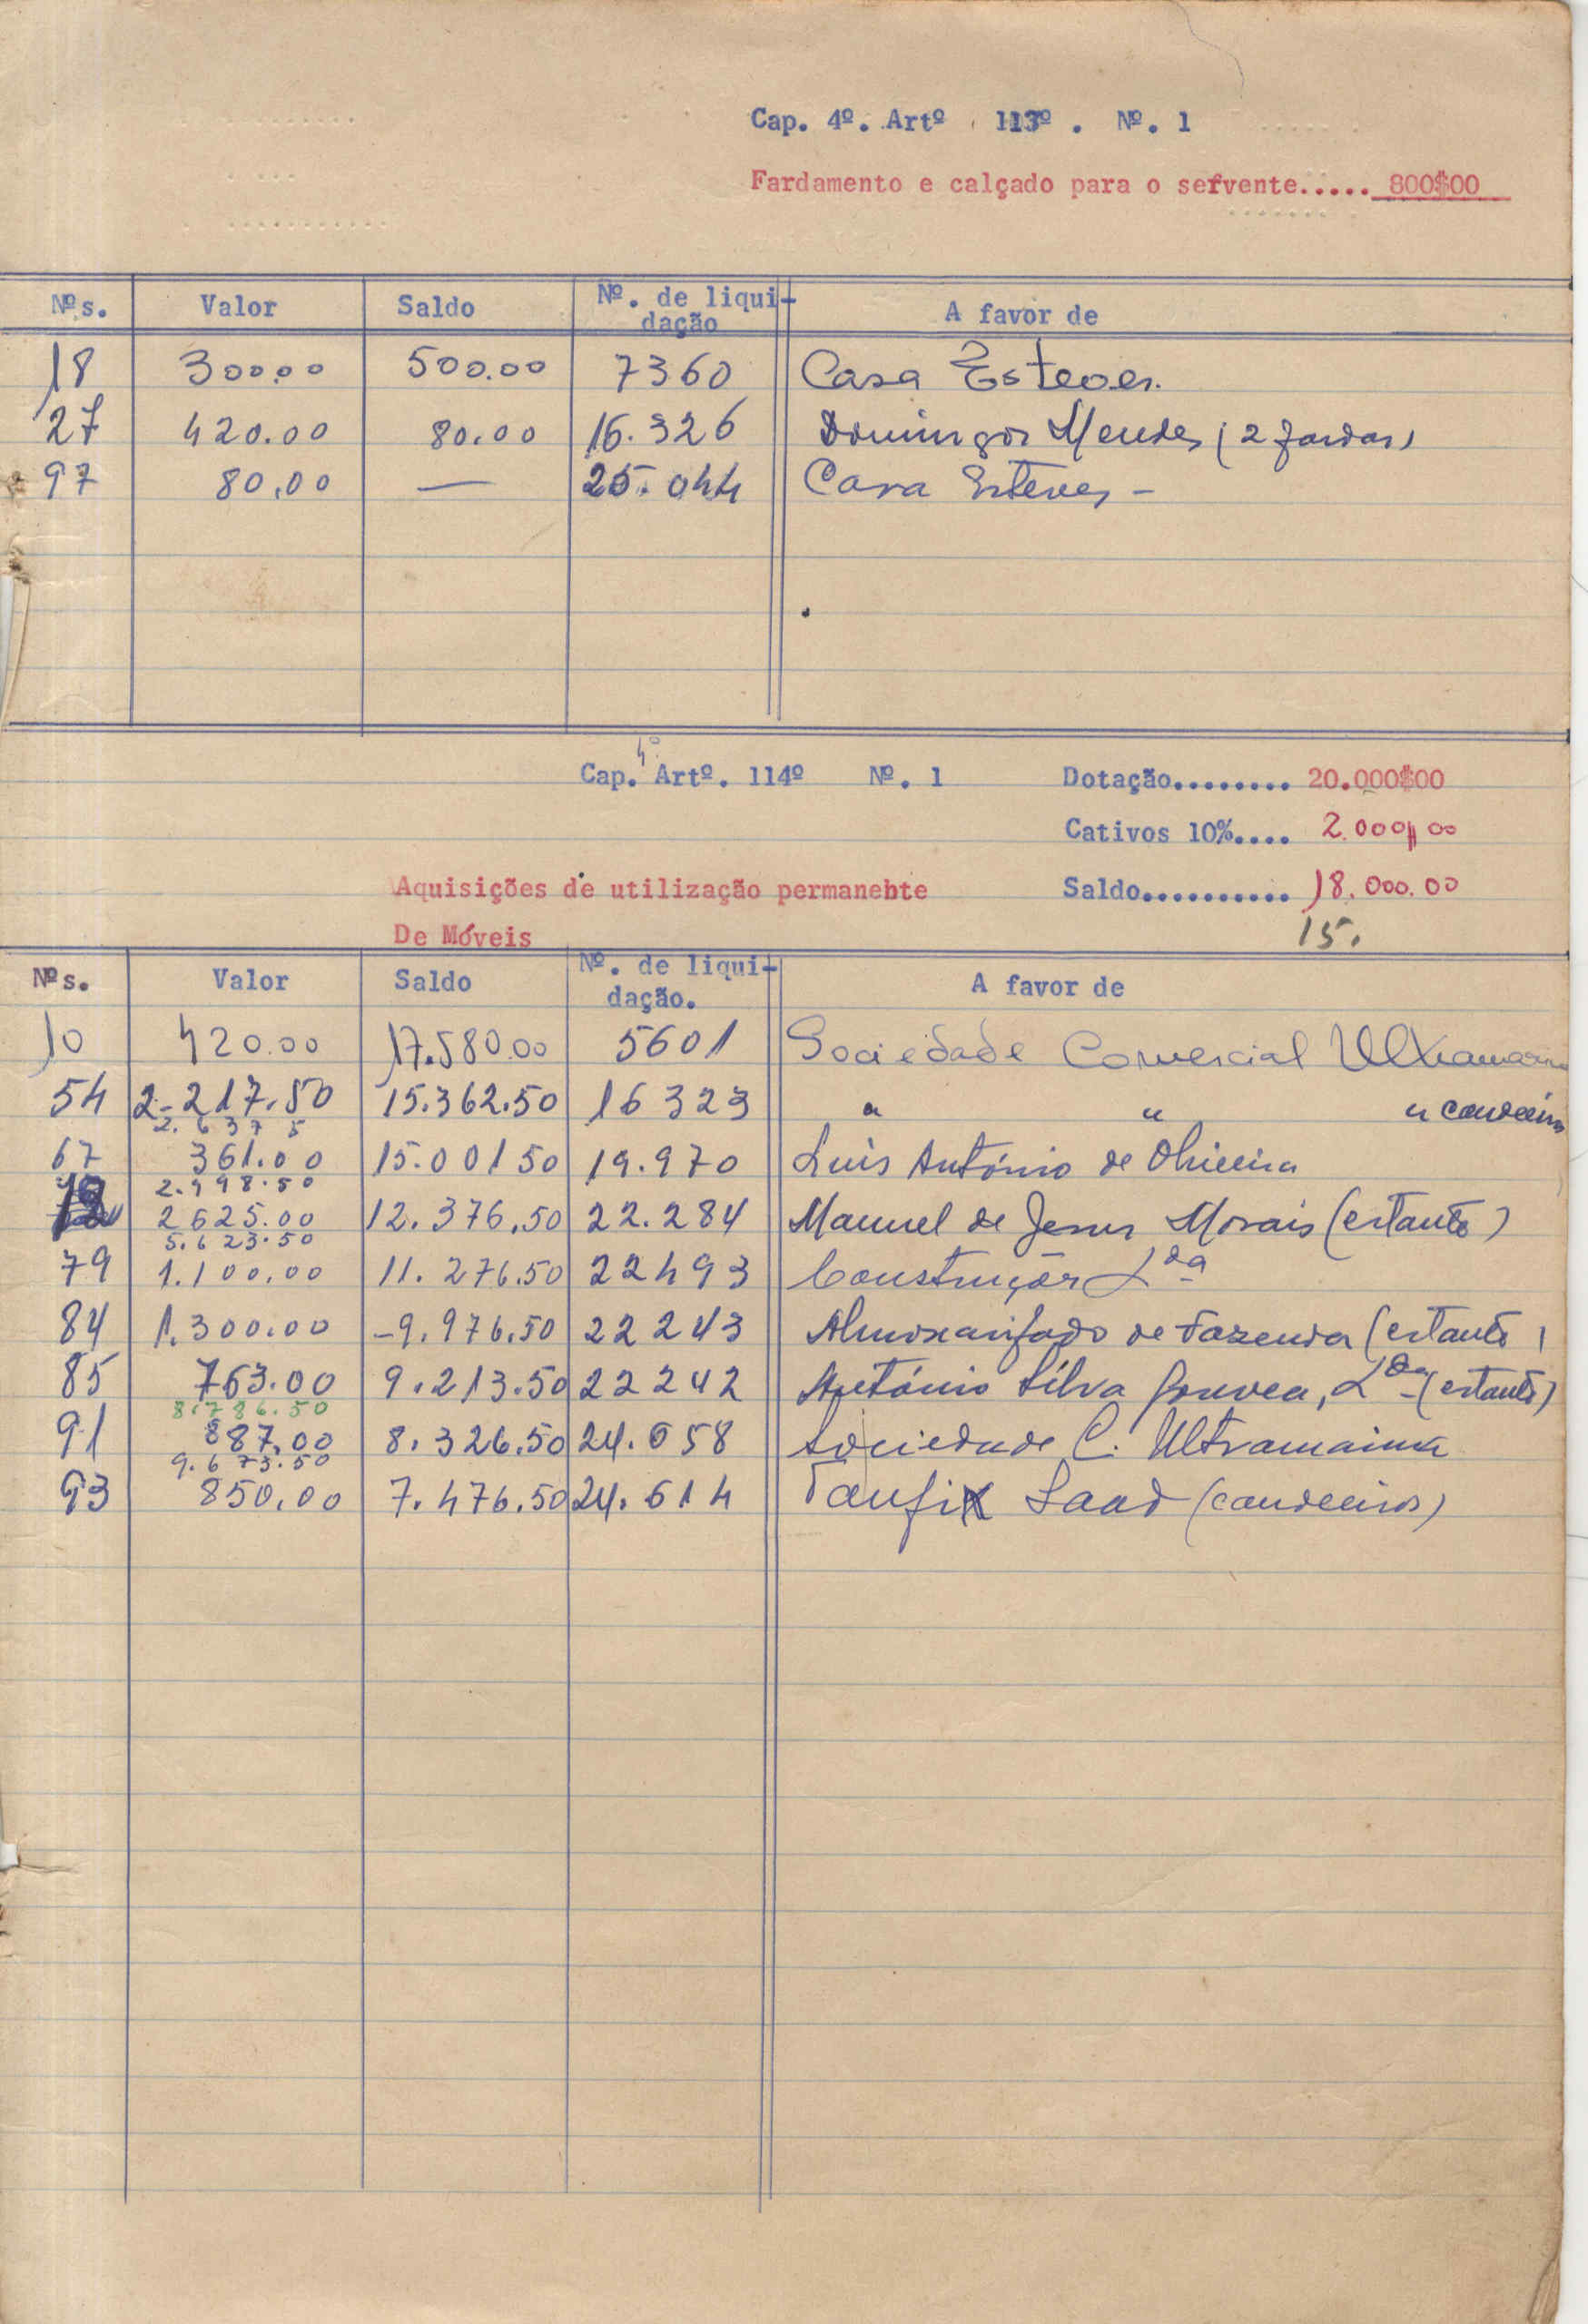 Cap. 4º. Artº 113º. Nº. 1
Fardamento e calçado para o servente..... 800$00
Nºs. Valor Saldo Nº. de liqui- A favor de
dação
18 300.00 500.00 7360 Casa Esteves.
27 420.00 80.00 16.326 Domingos Mendes (2 fardas)
97 80,00 — 25.044 Casa Esteves -
4º
Cap. Artº. 114º Nº. 1 Dotação........ 20.000$00
Cativos 10%.... 2.000$00
Aquisições de utilização permanente Saldo.......... 18.000.00
De Móveis 15.
Nºs. Valor Saldo Nº. de liqui- A favor de
dação.
10 420.00 17.580.00 5601 Sociedade Comercial Ultramarina
54 2.217.50 15.362.50 16323 " " " candeeiros
2.637 5
67 361.00 15.00150 19.970 Luis António de Oliveira
2.998.50
2625.00 12.376.50 22.284 Manuel de Jesus Morais (estante)
5.623.50
79 1.100.00 11.276.50 22493 Construções Lda
84 1.300.00 -9.976.50 22243 Almoxarifado de Fazenda (estante)
85 763.00 9.213.50 22242 António Silva Gouvea, Lda - (estante)
8.786.50
91 887.00 8.326.50 24.058 Sociedade C. Ultramarina
9.673.50
93 850,00 7.476.50 24.614 Taufik Saad (candeeiros)